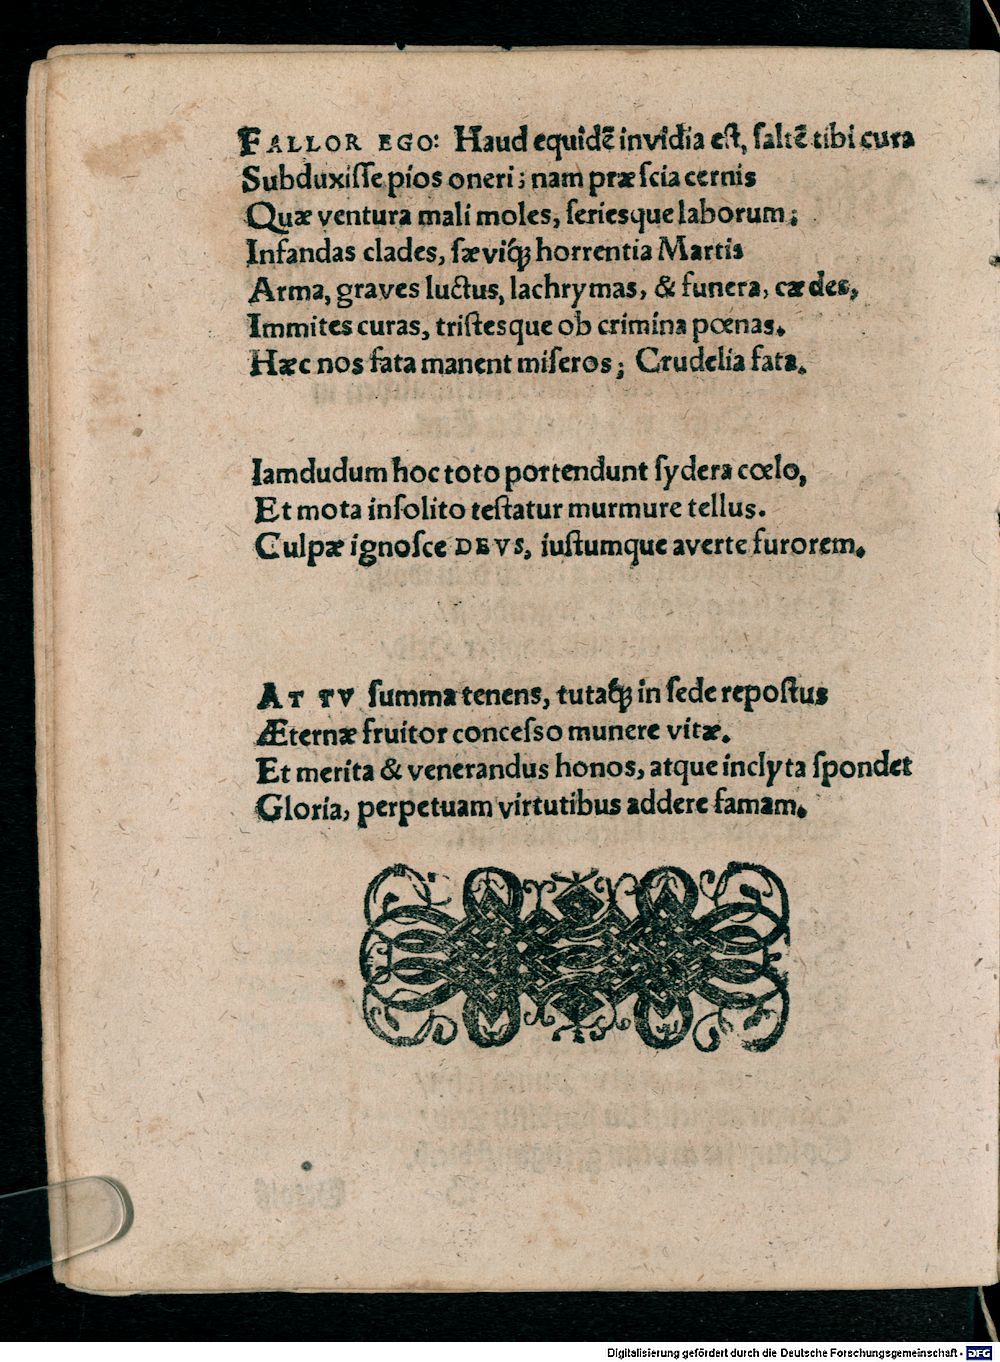 FALLOR EGO: Haud equidẽ invidia eſt, ſaltẽ tibi cura
Subduxiſſe pios oneri; nam præſcia cernis
Quæ ventura mali moles, ſeriesque laborum;
Infandas clades, ſæviq́; horrentia Martis
Arma, graves luctus, lachrymas, & funera, cædes,
Immites curas, triſtesque ob crimina pœnas.
Hæc nos fata manent miſeros; Crudelia fata.
Iamdudum hoc toto portendunt ſydera cœlo,
Et mota inſolito teſtatur murmure tellus.
Culpæ ignoſce DEVS, iuſtumque averte furorem.
AT TV ſumma tenens, tutaq́; in ſede repoſtus
Æternæ fruitor conceſso munere vitæ.
Et merita & venerandus honos, atque inclyta ſpondet
Gloria, perpetuam virtutibus addere famam.
Digitalisierung gefördert durch die Deutsche Forschungsgemeinschaft - DFG